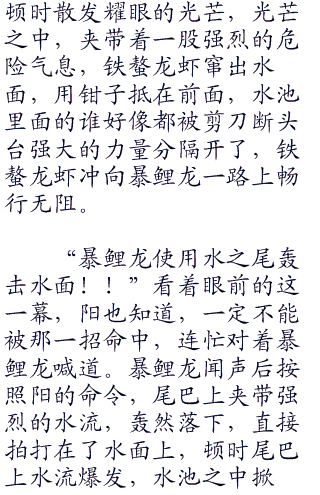 顿时散发耀眼的光芒，光芒
之中，夹带着一股强烈的危
险气息，铁螯龙虾窜出水
面，用钳子抵在前面，水池
里面的谁好像都被剪刀断头
台强大的力量分隔开了，铁
螯龙虾冲向暴鲤龙一路上畅
行无阻。
“暴鲤龙使用水之尾轰
击水面！！”看着眼前的这
一幕，阳也知道，一定不能
被那一招命中，连忙对着暴
鲤龙喊道。暴鲤龙闻声后按
照阳的命令，尾巴上夹带强
烈的水流，轰然落下，直接
拍打在了水面上，顿时尾巴
上水流爆发，水池之中掀